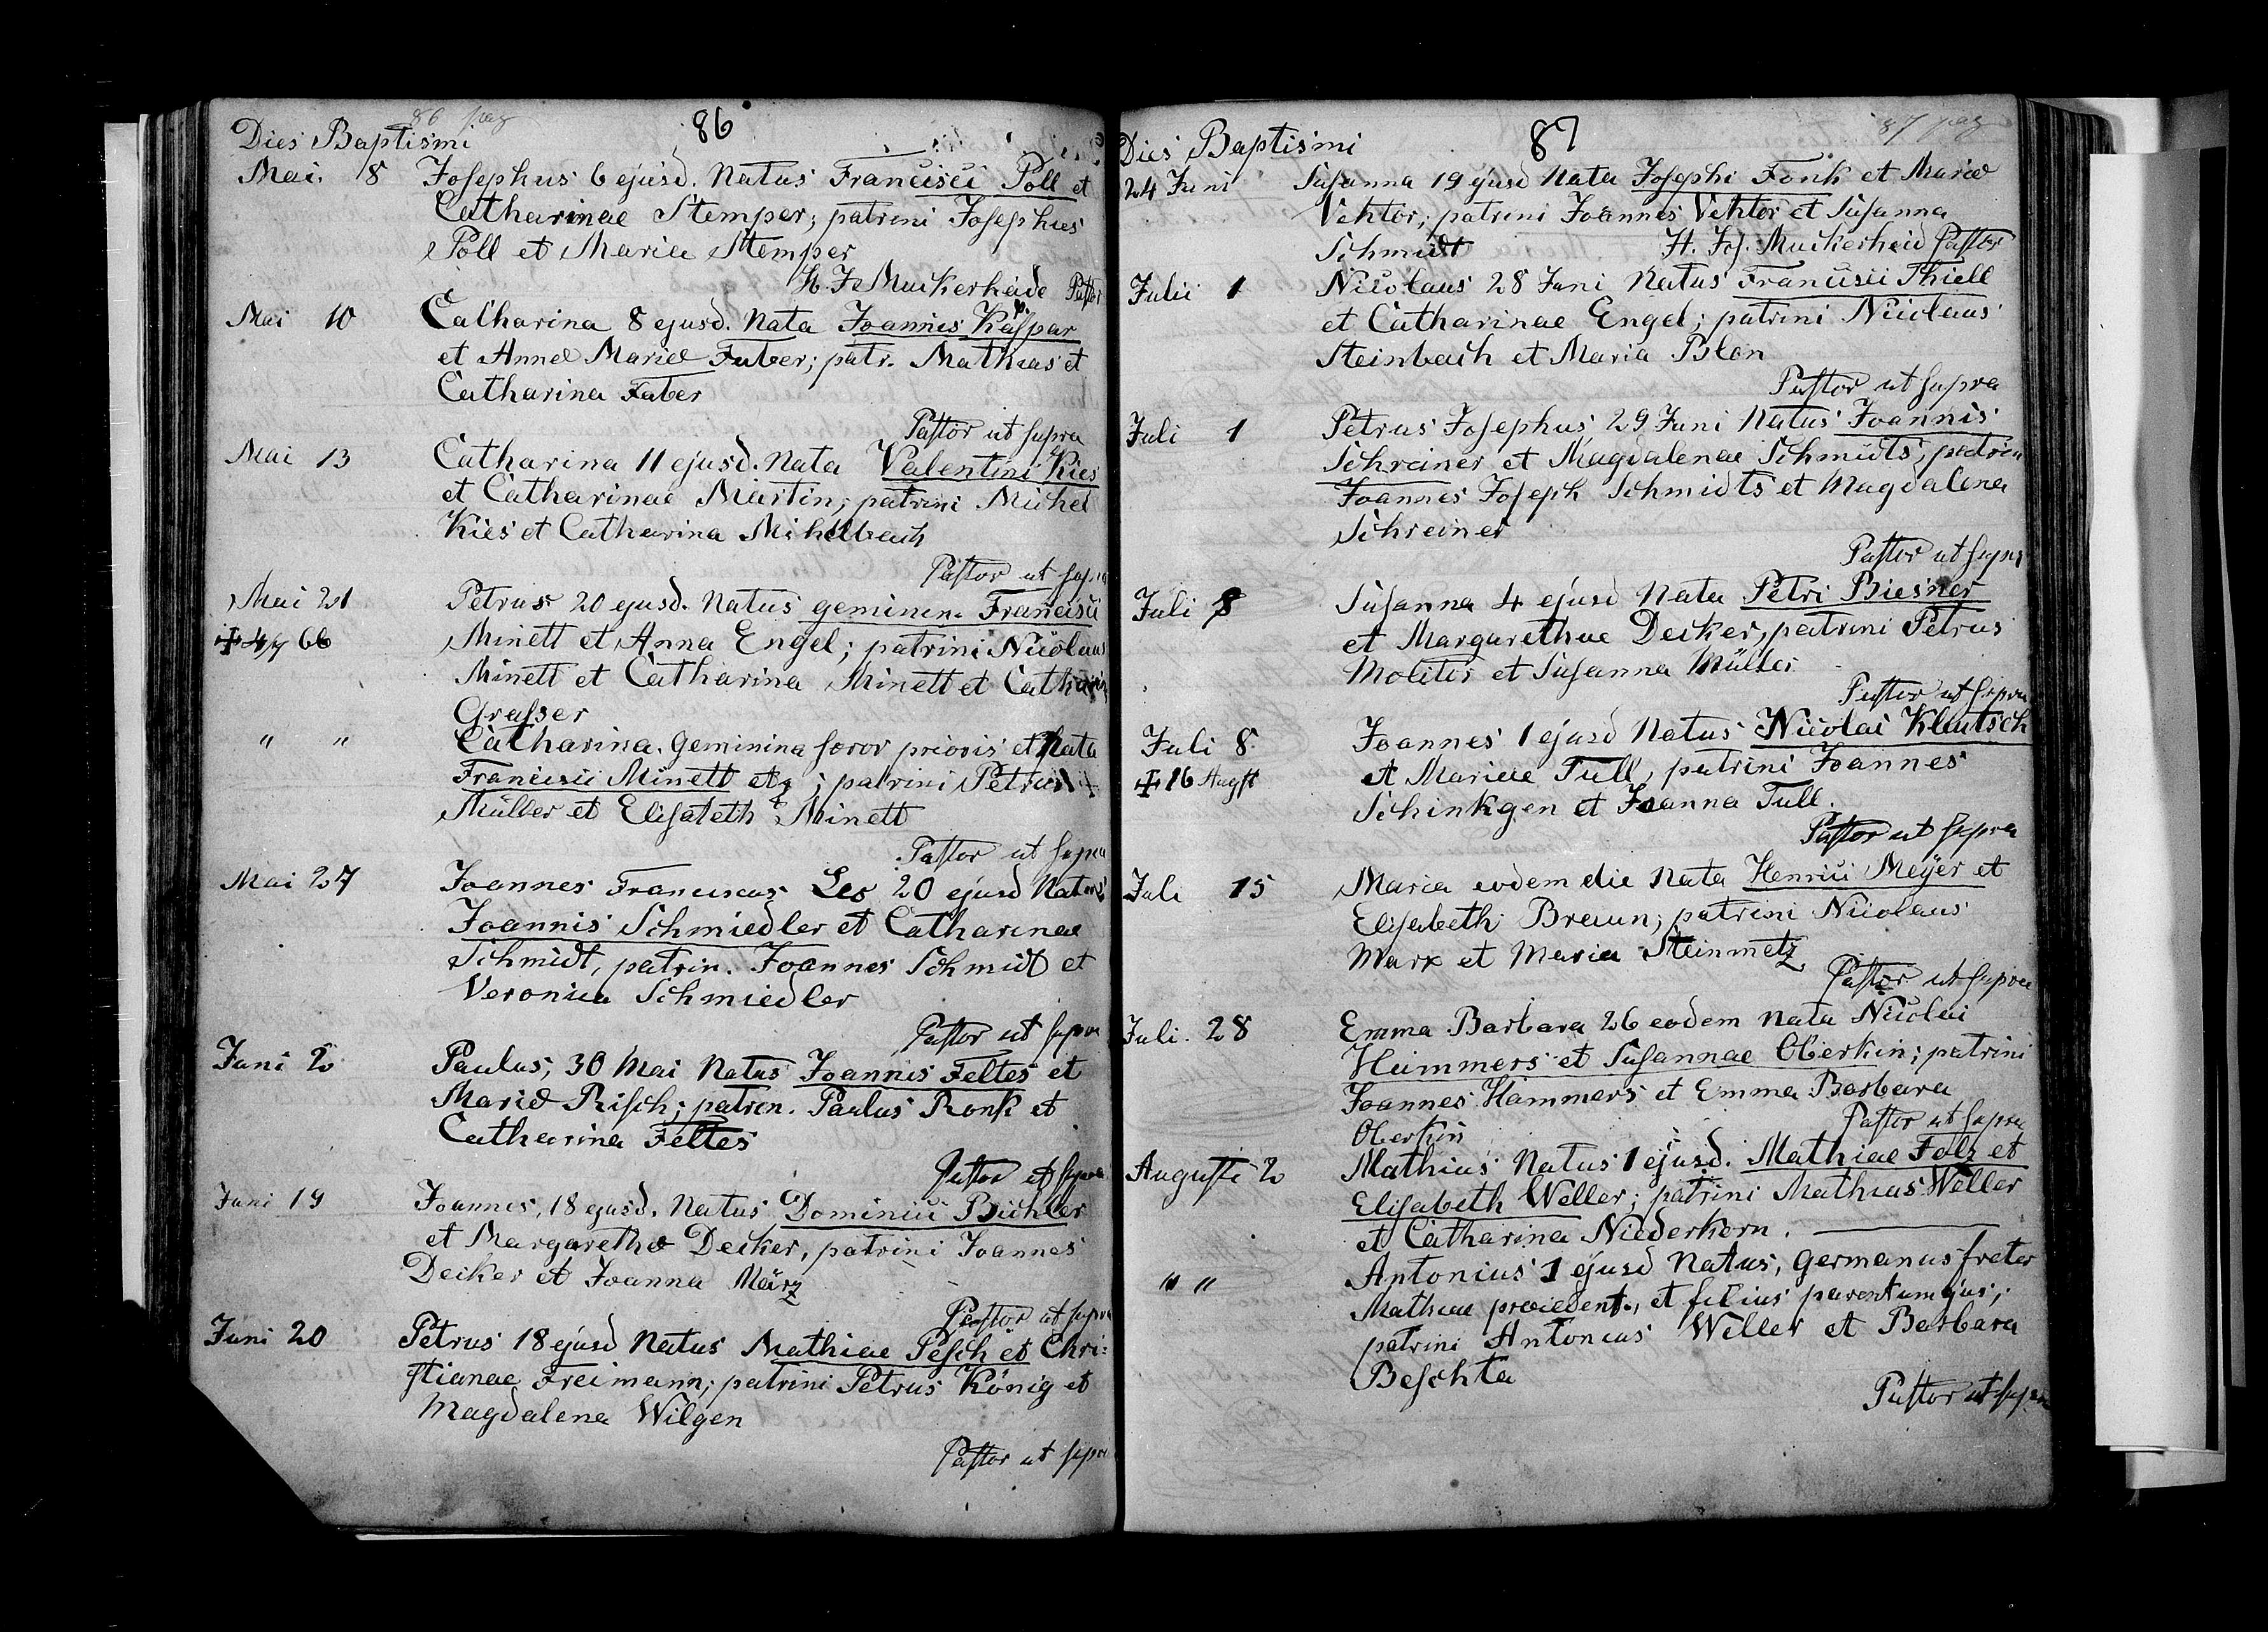 86 pag
86
Dies Baptismi
Mai. 8 Josephus 6 ejusd. Natus Francisci Poll et
Catharinae Stemper; patrini Josephus
Poll et Maria Stemper
H. J. Muckerheide Pastor
Mai 10 Catharina 8 ejusd. Nata Joannis Kaspar
et Annae Mariae Faber; patr. Mathias et
Catharina Faber
Pastor ut supra
Mai 13 Catharina 11 ejusd. Nata Valentini Kies
et Catharinae Martin; patrini Michel
Kies et Catharina Mihlbach
Pastor ut supra
Mai 21 Petrus 20 ejusd. Natus geminen. Francisci
Minett et Anna Engel; patrini Nicolaus
Minett et Catharina Minett et Catharina
Grasser
" " Catharina. Geminina soror prioris et Nata
Francisci Minett etz; patrini Petrus
Müller et Elisabeth Minett
Pastor ut supra
Mai 27 Joannes Franciscus Leo 20 ejusd Natus
Joannis Schmiedler et Catharinae
Schmidt, patrin. Joannes Schmidt et
Veronica Schmiedler
Pastor ut supra
Juni 2 Paulus, 30 Mai Natus Joannis Feltes et
Mariae Risch; patrin. Paulus Ronk et
Catharina Feltes
Pastor ut supra
Juni 19 Joannes, 18 ejusd. Natus Dominici Bichler
et Margarethae Decker, patrini Joannes
Decker et Joanna März
Pastor ut supra
Juni 20 Petrus 18 ejusd Natus Mathiae Pesch et Chri=
stianae Freimann; patrini Petrus König et
Magdalena Wilgen
Pastor ut supra
87 pag
87
Dies Baptismi
24 Juni Susanna 19 ejusd Nata Josephi Fonk et Mariae
Vehtor; patrini Joannes Vehtor et Susanna
Schmidt H. Jos. Muckerheid Pastor
Julii 1 Nicolaus 28 Juni Natus Francisci Thiell
et Catharinae Engel; patrini Nicolaus
Steinbach et Maria Blon
Pastor ut supra
Juli 1 Petrus Josephus 29 Juni Natus Joannis
Schreiner et Magdalenae Schmidts; patrin
Joannes Joseph Schmidts et Magdalena
Schreiner
Pastor ut supr
Juli 8 Susanna 4 ejusd Nata Petri Biesner
et Margarethae Decker, patrini Petrus
Molitis et Susanna Müller
Pastor ut supra
Juli 8. Joannes 1 ejusd Natus Nicolai Klautsch
+ 16 Augst et Mariae Tull, patrini Joannes
Schinkgen et Joanna Tull.
Pastor ut supra
Juli 15 Maria eodem die Nata Henrici Meÿer et
Elisabeth Braun; patrini Nicolaus
Marx et Maria Steinmetz
Pastor ut supra
Juli. 28 Emma Barbara 26 eodem Nata Nicolai
Hammers et Susannae Oberkin; patrini
Joannes Hammers et Emma Barbara
Oberkin Pastor ut supra
Augusti 2 Mathias Natus 1 ejusd. Mathiae Felz et
Elisabeth Weller; patrini Mathias Weller
et Catharina Niederkorn.
" " Antonius 1 ejusd Natus, Germanus frater
Mathiae praecedent., et filius parentum ejus;
patrini Antonius Weller et Barbara
Beschta
Pastor ut supra